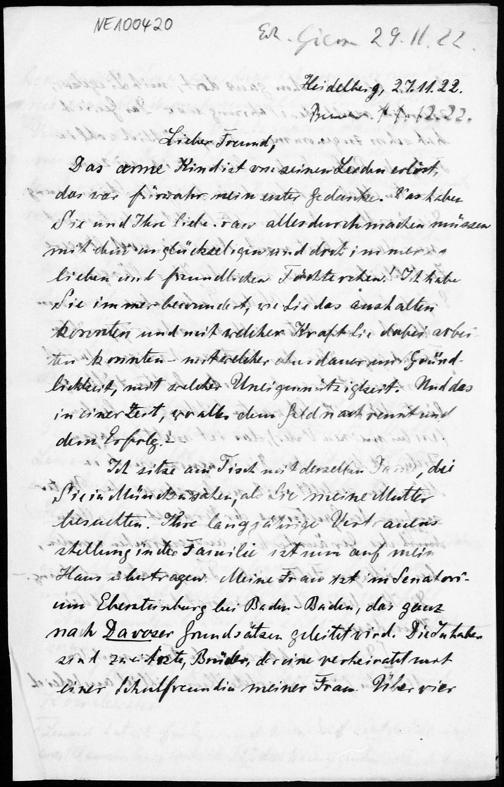 NE100420
Erh. Giess 29.11.22.
Heidelberg, 27.11.22.
12.22.
Lieber Freund,
Das arme Kind ist von seinen Leiden erlöst,
das war fürwahr mein erster Gedanke. Was haben
Sie und Ihre liebe Frau alles durchmachen müssen
mit dem unglückseligen und doch immer
lieben und freundlichen Töchterchen! Ich habe
Sie immer bewundert, wie Sie das aushalten
konnten und mit welcher Kraft Sie dabei arbei-
ten konnten – mit welcher Gründ-
lichkeit, mit welcher Uneigennützigkeit. Und das
in einer Zeit, wo alles dem Geld nachrennt und
dem Erfolg.
Ich sitze am Tisch mit derselben Dame, die
Sie in München sahen, als Sie meine Mutter
besuchten. Ihre langjährige Vertrauens-
stellung in der Familie ist nun auf mein
Haus übertragen. Meine Frau ist im Sanatori-
um Ebersteinburg bei Baden-Baden, das ganz
nach Davoser Grundsätzen geleitet wird. Die Inhaber
sind zwei Ärzte, Brüder, der eine verheiratet mit
einer Schulfreundin meiner Frau. Über vier